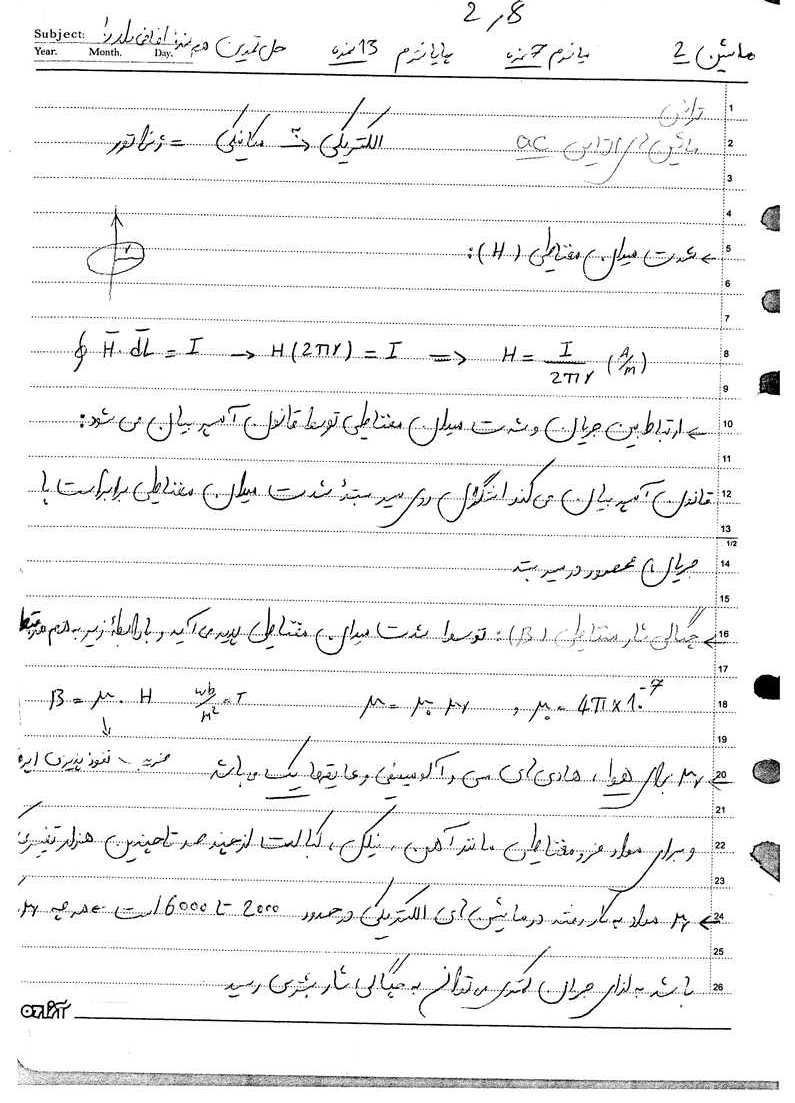 2,8
Subject: حل تمرین هم نمره اضافی دارد
Year. Month. Day.
ماشین 2 میانترم 7 نمره پایانترم 13 نمره
1
ماشین های ac
2
الکتریکی مکانیکی = ژنراتور
3
4
5
← شدت میدان مغناطیسی (H):
r
6
7
8
∮ H̄. dL̄ = I → H(2πr) = I ⇒ H = I/2πr (A/m)
9
10
← ارتباط بین جریان و شدت میدان مغناطیسی توسط قانون آمپر بیان می شود:
11
12
قانون آمپر بیان می کند انتگرال روی مسیر بستهٔ شدت میدان مغناطیسی برابر است با
13
1/2
14
جریان محصور در مسیر بسته
15
16
← چگالی شار مغناطیسی (B): توسط شدت میدان مغناطیسی پدید می آید و با رابطهٔ زیر به هم مرتبط
17
18
B = μ . H wb/m² = T μ = μ₀ μr , μ₀ = 4π×10⁻⁷
19
ضریب نفوذپذیری
20
← μr برای هوا، هادی های مسی و آلومینیمی و عایقها یک می باشد
21
22
و برای مواد فرومغناطیس مانند آهن، نیکل، کبالت از چند صد تا چندین هزار تغییر
23
24
← μr مواد به کار رفته در ماشین های الکتریکی در حدود 2000 تا 6000 است ← هرچه μr
25
26
باشد به ازای جریان کمتری می توان به چگالی شار بیشتری رسید